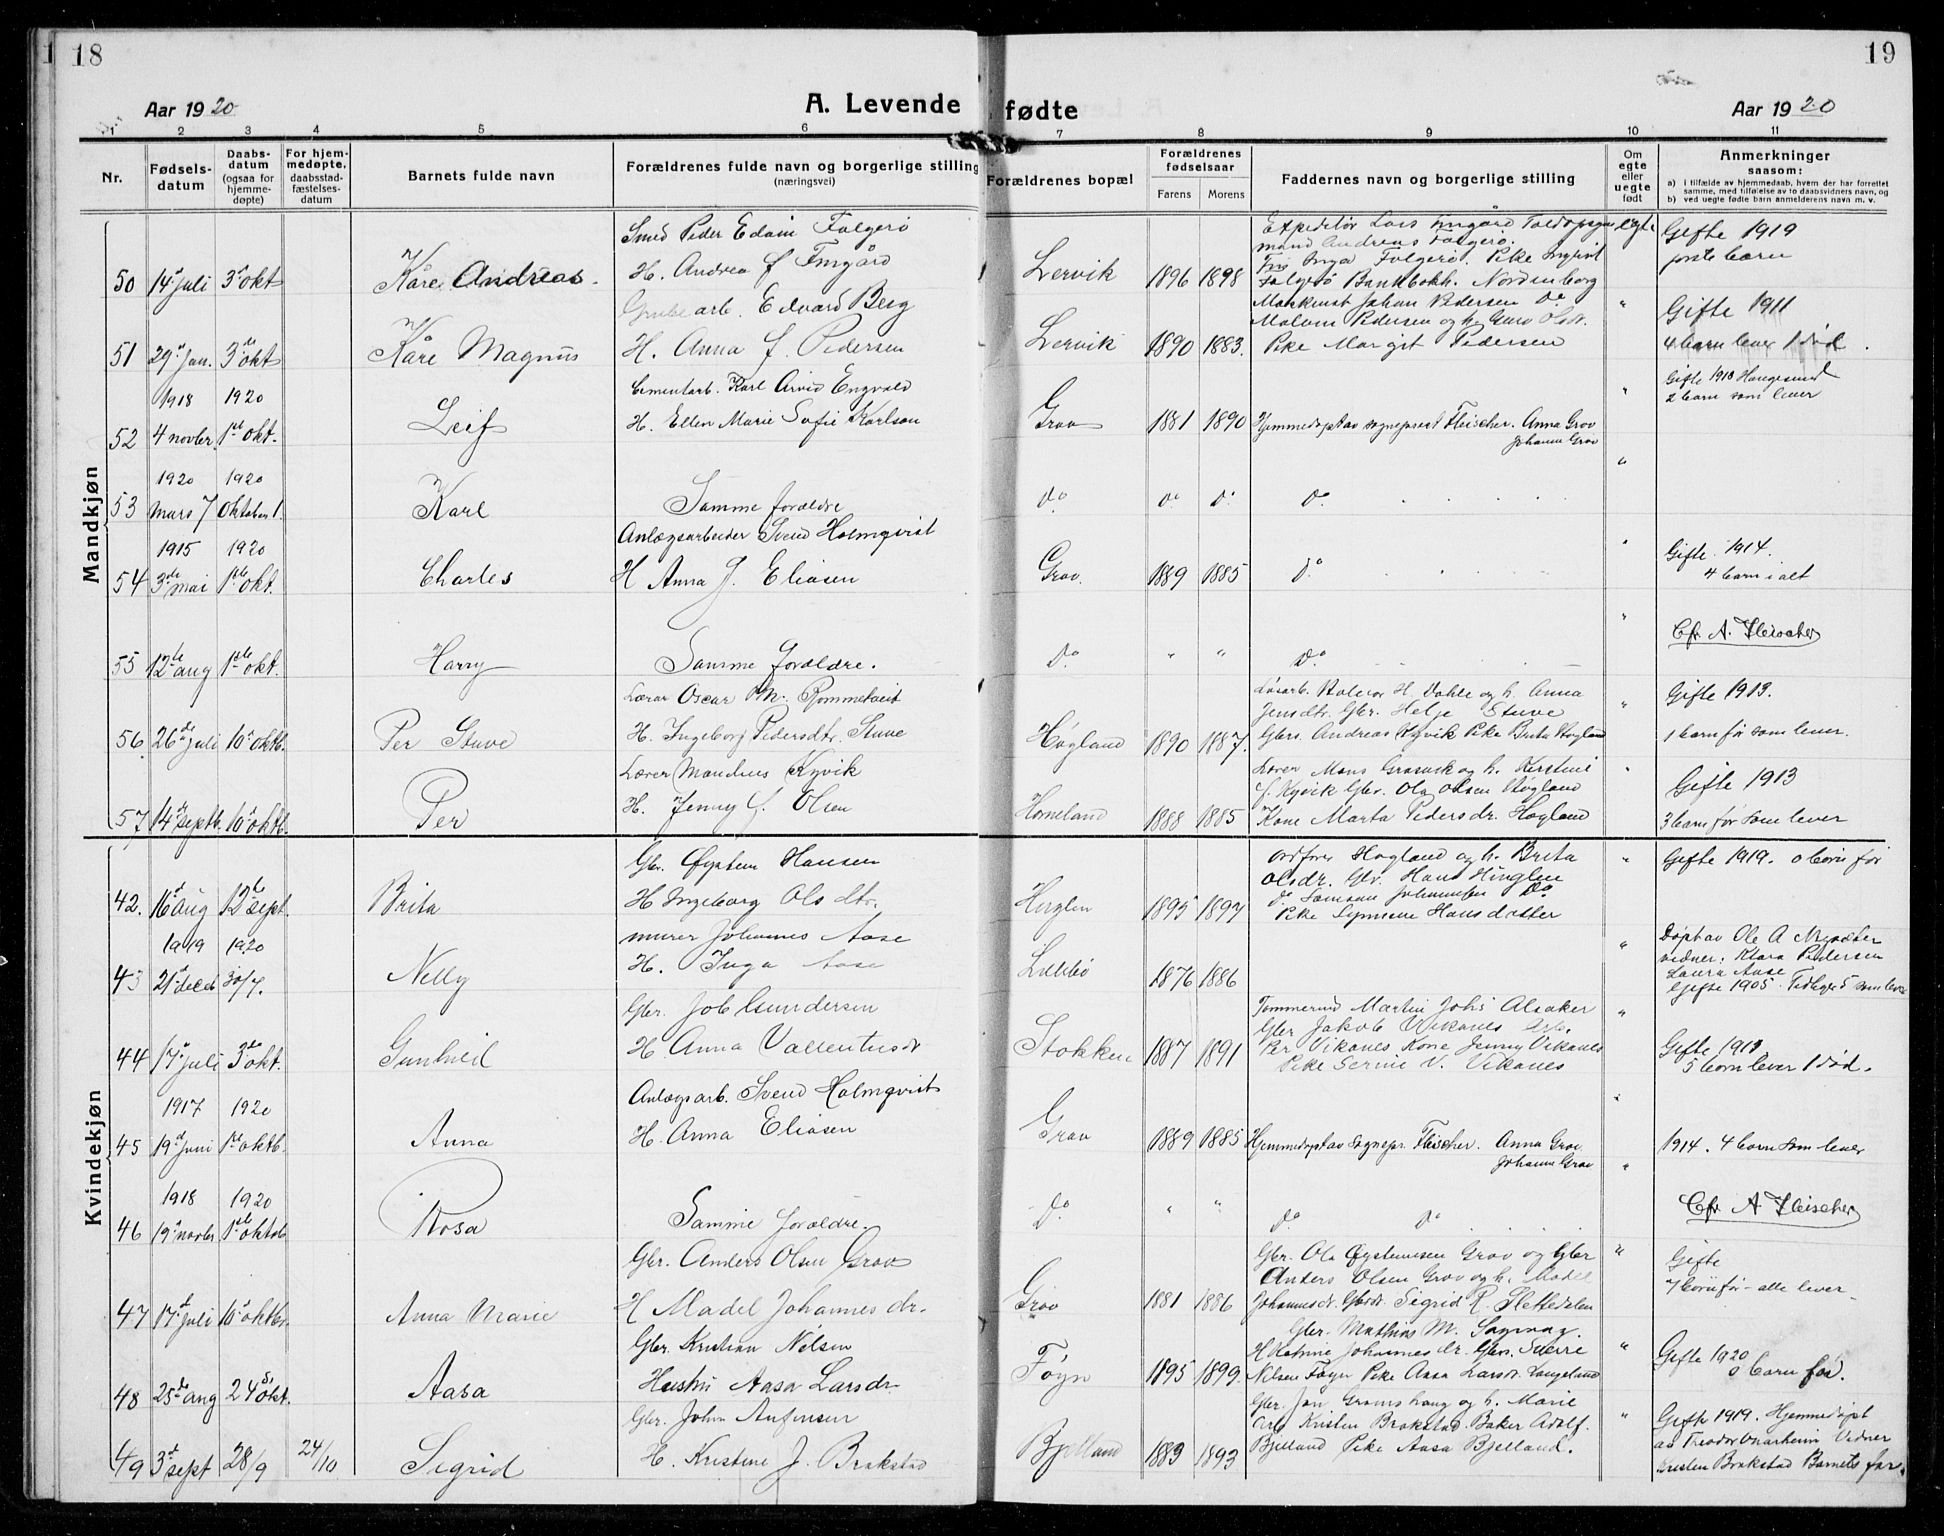 18
19
A. Levende fødte
Aar 1920
Aar 1920
1 2 3 4 5 6 7 8 9 10 11
Nr.
Fødsels-
datum
Daabs-
datum
(ogsaa for
hjemme-
døpte)
For hjem-
medøpte,
daabsstad-
fæstelses-
datum
Barnets fulde navn
Forældrenes fulde navn og borgerlige stilling
(næringsvei)
Forældrenes bopæl
Forældrenes
fødselsaar
Farens
Morens
Faddernes navn og borgerlige stilling
Om
egte
eller
uegte
født
Anmerkninger
saasom:
a) i tilfælde av hjemmedaab, hvem der har forrettet
samme, med tilføielse av to daabsvidners navn, og
b) ved uegte fødte barn anmelderens navn m. v.
Mandkjøn
Smed Peder Edvin Folgerø
50 14de juli 3die okt Kåre Andreas H. Andrea f. Fingård Lervik 1896 1898 egte Gifte 1919
første barn
Grubearb. Edvard Berg
51 29de Jan. 3die okt Kåre Magnus H. Anna f. Pedersen Lervik 1890 1883. Pike Margit Pedersen " Gifte 1911
4 barn lever 1 død.
1918 1920 Cementarb. Karl Arvid Engvald
52 4 novbr 1ste okt. Leif H. Ellen Marie Sofie Karlson Grov 1881 1890 Hjemmedøpt av sogneprest Fleischer. Anna Grov
Johanna Grov " Gifte 1913 Haugesund
2 barn som lever
1920 1920
53 Mars 7 Oktober 1. Karl Samme forældre do do do do "
1915 1920 Anlægsarbeider Svend Holmqvist
54 3die mai 1ste okt. Charles H Anna J. Eliasen Grov. 1889 1885 do " Gifte 1914.
4 barn i alt
55 12te aug 1ste okt. Harry Samme forældre. do " " do " Cfr. A. Fleischer
Lærer Oscar M. Rommetveit
56 26de juli 10de oktb. Per Stuve H. Ingeborg Pedersdtr. Stuve Høgland 1890 1887. Gbr. Andreas Kyvik Pike Brita Høgland " Gifte 1913.
1 barn før som lever.
Lærer Mandius Kyvik
57 14de septb. 10de oktb. Per H. Jenny f. Olsen Horneland 1888 1885 Kone Marta Pedersdr. Høgland " Gifte 1913
3 barn før som lever
Kvindekjøn
Gbr. Øystein Hansen
42. 16de aug 12te sept. Brita H Ingeborg Olsdtr. 1895 1897 Ordfører Hogland og h. Brita
Olsdr. Gbr. Hans
do Samson Johannesen do
Pike Synneve Hansdatter " Gifte 1919. 0 barn før
1919 1920 murer Johannes Aase
43 21de decb 30/7. Nelly H. Inga Aase Lillebø 1876 1886 " Døpt av Ole A
vidner: Klara Pedersen
Laura Aase
Gifte 1905. Tidliger 5 som lever
Gbr. Job Gundersen
44 17de juli 3die okt. Gunhild H. Anna Valentinsdr Stokken 1887 1891 Tømmermd Martin Johs Alsaker
Gbr Jakob Vikanes
Per Vikanes Kone Jenny Vikanes
Pike Serine V. Vikanes " Gifte 1913
5 barn lever 1 død.
1917 1920 Anlægsarb. Svend Holmqvist
45 19de juni 1ste oktb. Anna H. Anna Eliasen Grov 1889 1885 Hjemmedøpt av sognepr. Fleischer. Anna Grov
Johanna Grov " 1914. 4 barn som lever
1918 1920
46 19de novbr 1ste oktob Rosa Samme forældre. do " " do do " Cfr. A Fleischer
Gbr. Anders Olsen Grov
47 17de juli 10de oktbr. Anna Marie H Madel Johannesdr. Grov 1881 1886 Gbr. Ola Øysteinsen Grov og Gbr
Anders Olsen Grov og h. Madel
Johannesdr. Gbrdr. Sigrid R. Slettedalen " Gifte
7 barn før - alle lever
Gbr. Kristian Nilsen
48 25de aug 24de okt. Aasa Hustru Aasa Larsdr Føyn 1895 1899. Gbr. Mathias M. Sagvaag.
H Katrine Johannesdr. Gbr. Sverre
Nilsen Føyn Pike Aasa Larsdr. Langeland " Gifte 1920
0 barn før.
Gbr. John Anfinsen
49 3die sept 28/9 24/10 Sigrid H. Kristine J. Brakstad Bjelland 1883 1893 og h. Marie
Arb Kristen Brakstad. Baker Adolf
Bjelland Pike Aasa Bjelland. " Gifte 1919. Hjemmedøpt
av Vidner
Kristen Brakstad Barnets far.